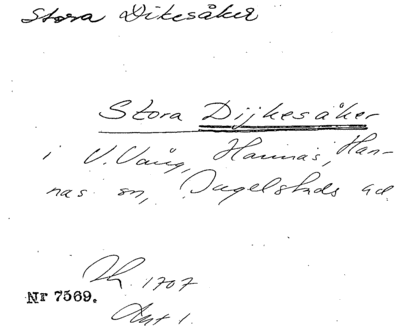 Stora Dikesåker
Stora Dijkesåker
i V. Vång, Hannas, Han-
nas sn, Ingelstads hd.
Lh. 1707
Nr 7569.
Akt 1.